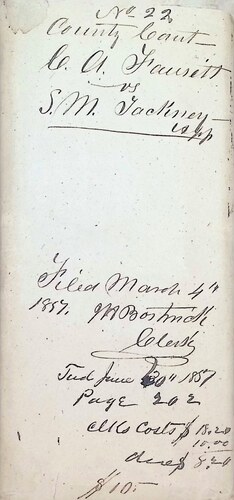 No. 22
County Court
C. A. Fausett
vs
S. M. Tackney
Filed March 4"
1857. Bostwick
Clerk
Jud June 30" 1857
Page 202
Clks Costs $ 18.20
10.00
due $ 8.20
$10.